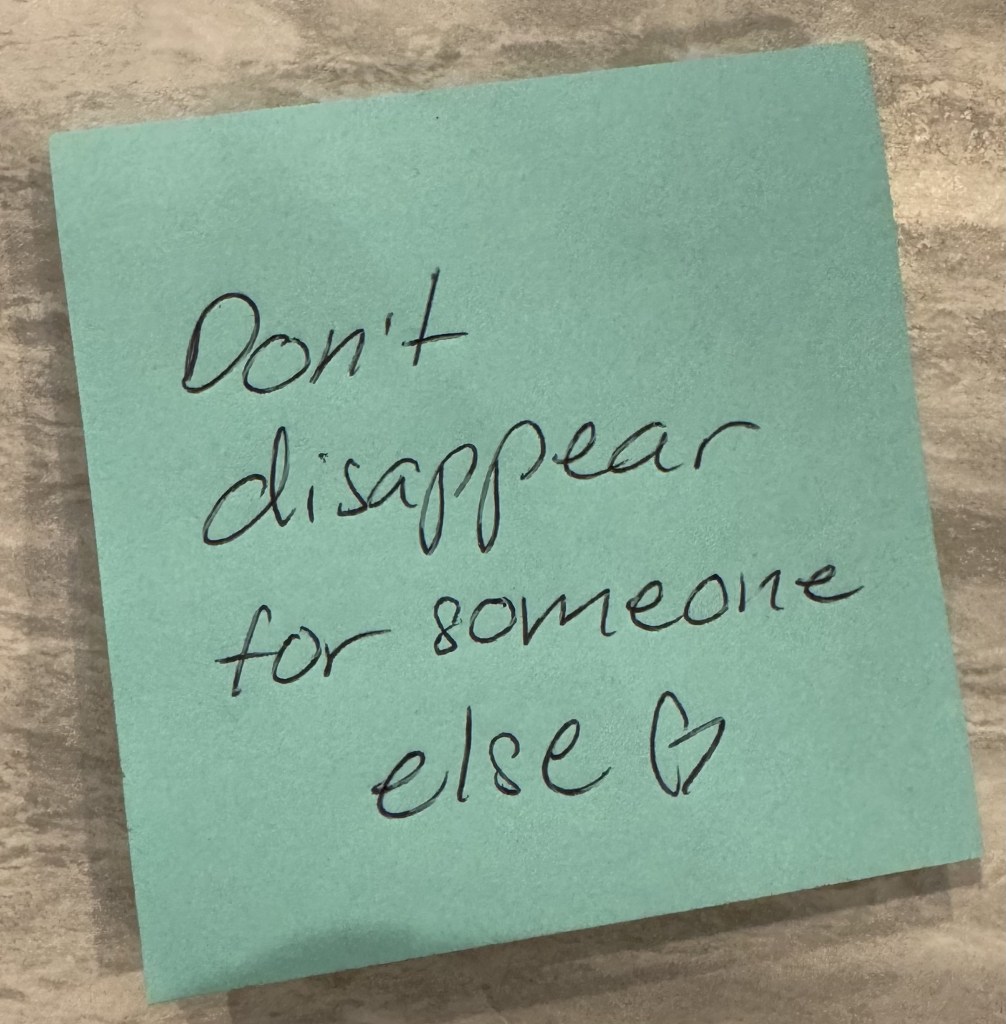 Don't
disappear
for someone
else ♡